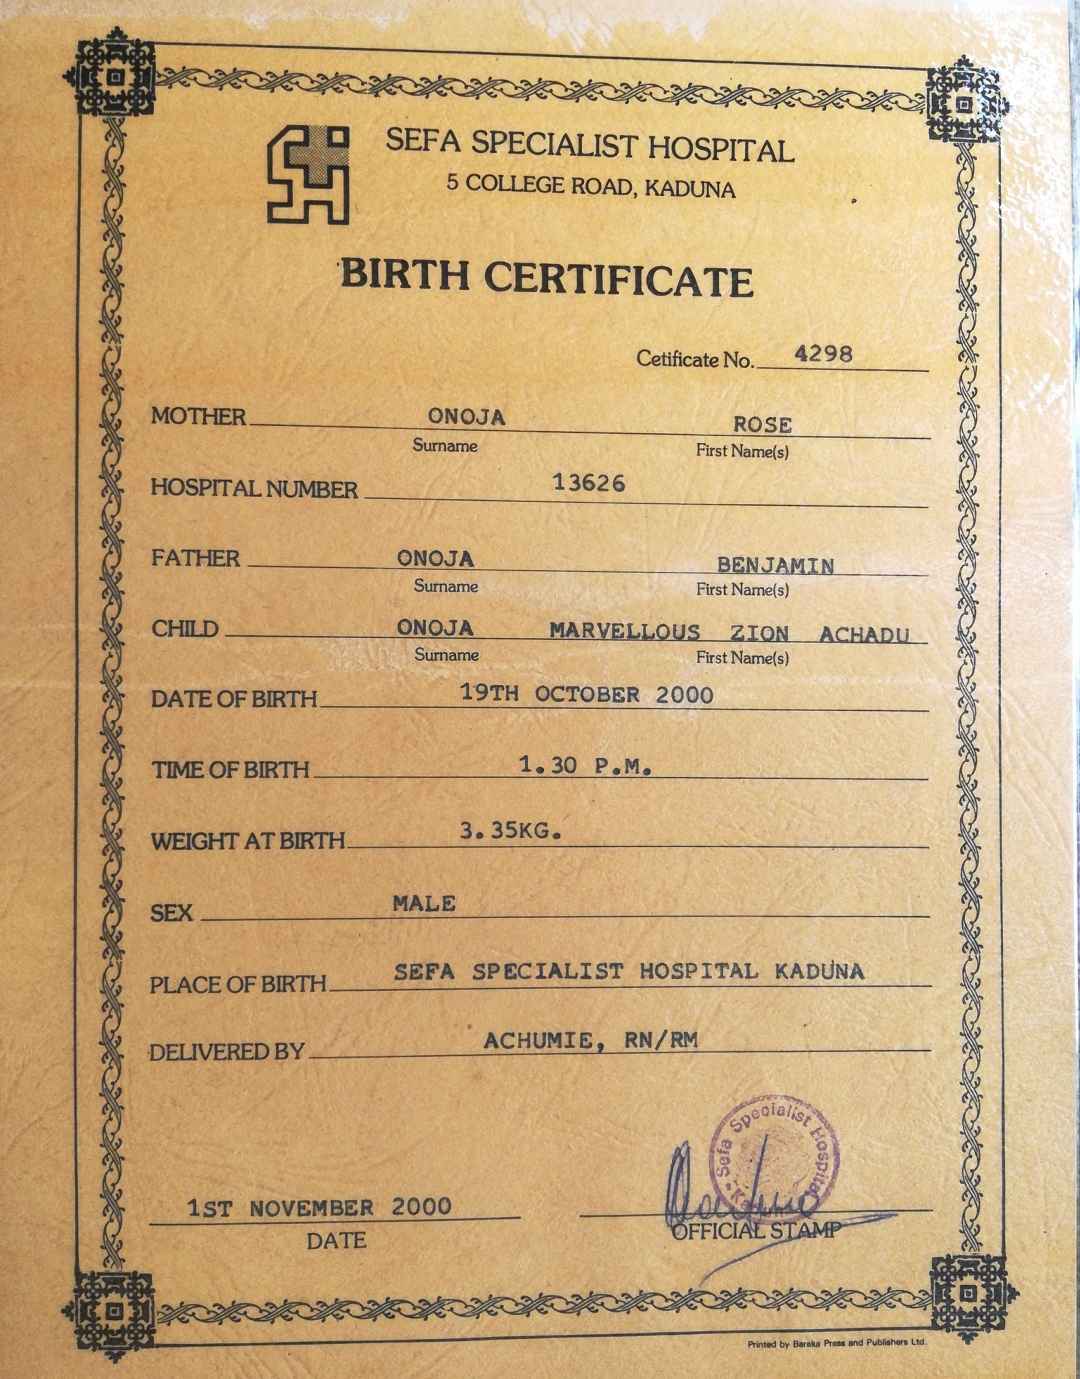 SEFA SPECIALIST HOSPITAL
5 COLLEGE ROAD, KADUNA
BIRTH CERTIFICATE
Cetificate No. 4298
MOTHER ONOJA ROSE
Surname First Name(s)
HOSPITAL NUMBER 13626
FATHER ONOJA BENJAMIN
Surname First Name(s)
CHILD ONOJA MARVELLOUS ZION ACHADU
Surname First Name(s)
DATE OF BIRTH 19TH OCTOBER 2000
TIME OF BIRTH 1.30 P.M.
WEIGHT AT BIRTH 3.35KG.
SEX MALE
PLACE OF BIRTH SEFA SPECIALIST HOSPITAL KADUNA
DELIVERED BY ACHUMIE, RN/RM
Sefa Specialist Hospital
1ST NOVEMBER 2000
DATE OFFICIAL STAMP
Printed by Baraka Press and Publishers Ltd.